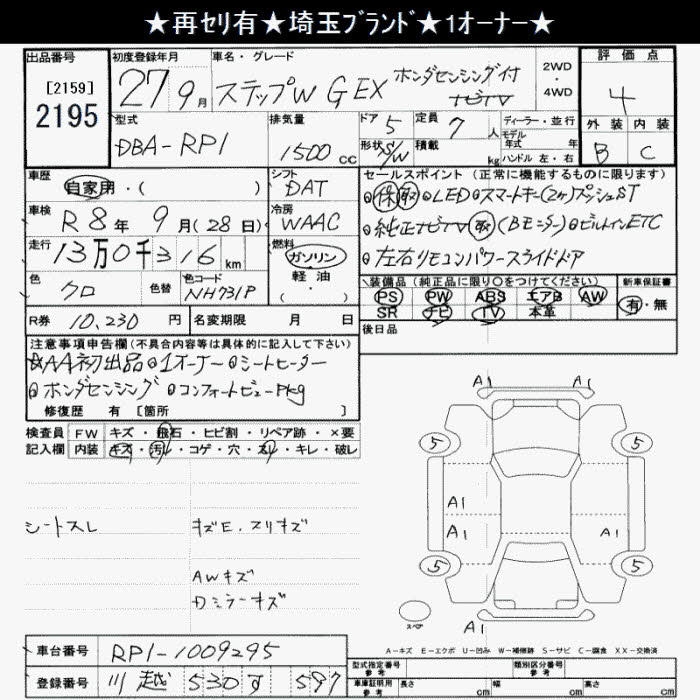 ★再セリ有★埼玉ブランド★1オーナー★
出品番号
[2159]
2195
初度登録年月
27 9月
車名・グレード
ステップW G EX ホンダセンシング付
ナビTV
2WD
・
4WD
評価点
4
外装 内装
B C
型式
DBA-RP1
排気量
1500 cc
ドア 5
形状 S/W
定員 7 人
積載 kg
ディーラー・並行
モデル
年式 年
ハンドル 左・右
車歴
自家用・( )
シフト
DAT
セールスポイント (正常に機能するものに限ります)
保取 LED スマートキー(2ケ)プッシュST
純正ナビTV 取 (Bモニター) ビルトインETC
左右リモコンパワースライドドア
車検
R8年 9月(28日)
冷房
WAAC
走行
13万0千316 km
燃料
ガソリン
軽油・
( )
色
クロ
色替
色コード
NH731P
装備品 (純正品に限り○をつけてください)
PS PW ABS エアB AW
SR ナビ TV 本革
新車保証書
有・無
R券 10,230 円
名変期限 月 日
後日品
注意事項申告欄(不具合内容等は具体的に記入して下さい)
☆AA初出品 1オーナー シートヒーター
ホンダセンシング コンフォートビューPkg
修復歴 有 [箇所 ]
検査員 FW キズ・飛石・ヒビ割・リペア跡・×要
記入欄 内装 キズ・汚レ・コゲ・穴・スレ・キレ・破レ
シートスレ
キズE、スリキズ
AWキズ
Dミラーキズ
A1 A1
5 5
A1
A1 A1
5 5
スペア
A1
A-キズ E-エクボ U-凹み W-補修跡 S-サビ C-腐食 XX-交換済
車台番号 RP1-1009295
登録番号 川越 530 す 597
型式指定番号
参考
類別区分番号
参考
車庫証明用
参考
長さ cm
幅 cm
高さ cm